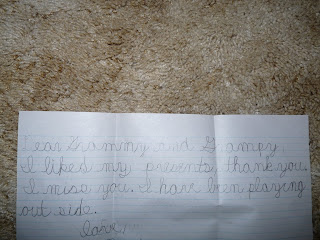 Dear Grammy and Grampy,
I liked my presents, thank you.
I miss you. I have been playing
out side.